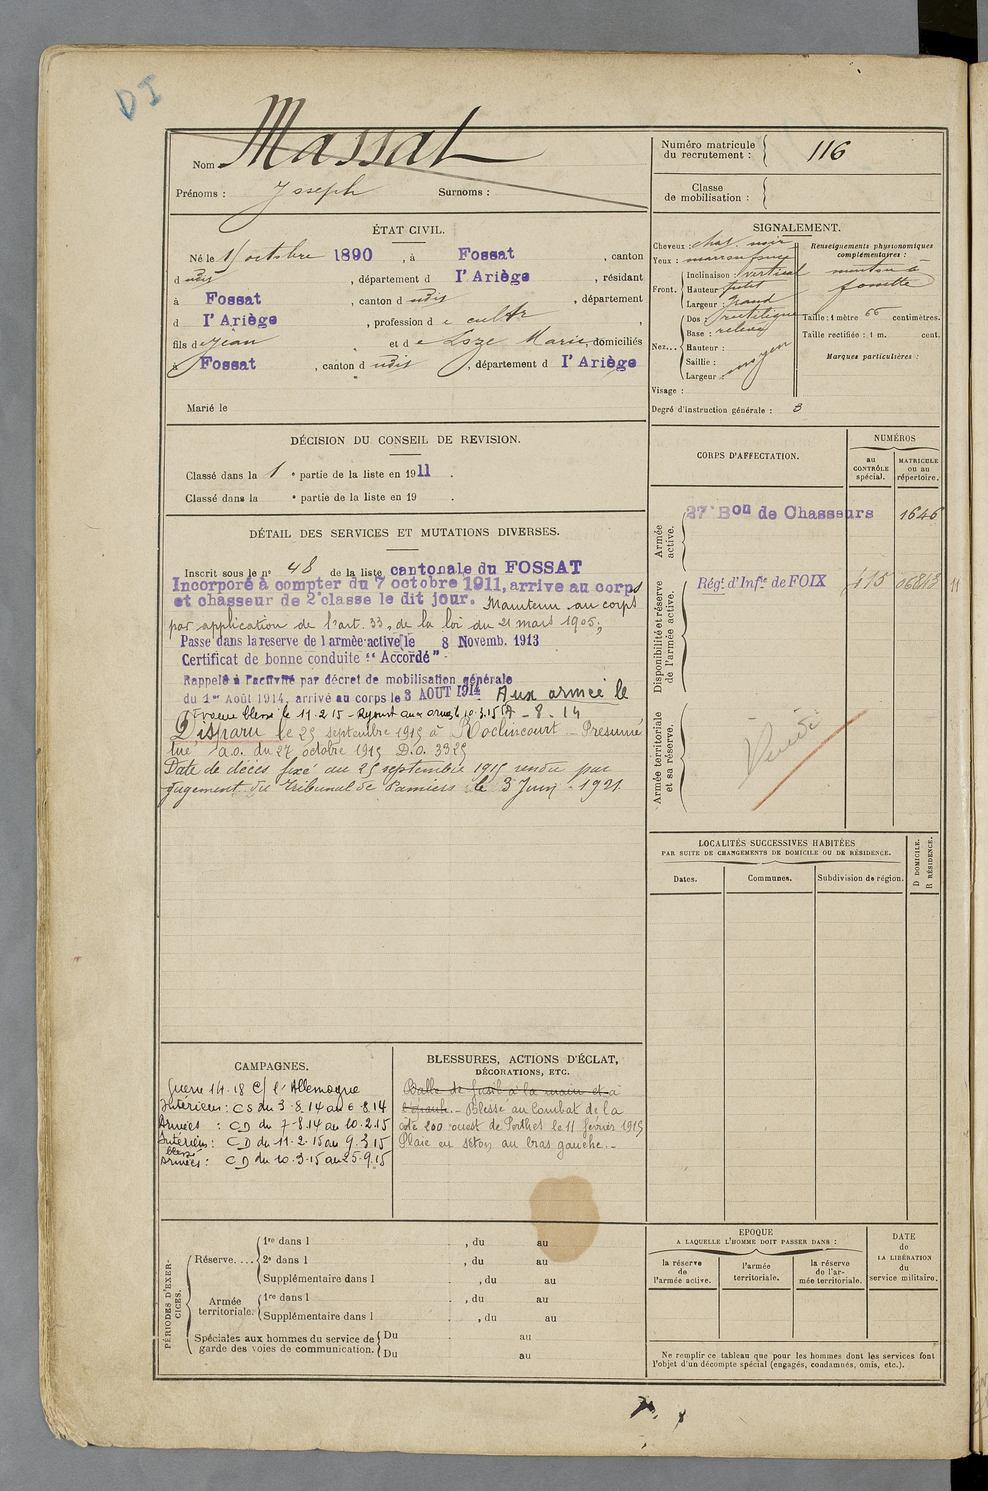 DI
Nom Massat
Prénoms : Joseph Surnoms :
Numéro matricule du recrutement : 116
Classe de mobilisation :
ÉTAT CIVIL.
Né le 15 octobre 1890, à Fossat, canton
d udit, département d l'Ariège, résidant
à Fossat, canton d udit, département
d l'Ariège, profession d e cultr,
fils d e Jean et d e Loze Marie, domiciliés
à Fossat, canton d udit, département d l'Ariège
Marié le
SIGNALEMENT.
Cheveux : chat. noir
Yeux : marron foncé
Front. Inclinaison : vertical
Hauteur : petit
Largeur : grand
Nez... Dos : rectiligne
Base : relevé
Hauteur :
Saillie :
Largeur : moyen
Visage :
Degré d'instruction générale : 3
Renseignements physionomiques complémentaires :
menton à
fossette
Taille : 1 mètre 66 centimètres.
Taille rectifiée : 1 m. cent.
Marques particulières :
DÉCISION DU CONSEIL DE REVISION.
Classé dans la 1 e partie de la liste en 1911.
Classé dans la e partie de la liste en 19 .
DÉTAIL DES SERVICES ET MUTATIONS DIVERSES.
Inscrit sous le n° 48 de la liste cantonale du FOSSAT
Incorporé à compter du 7 octobre 1911, arrive au corps
et chasseur de 2e classe le dit jour. Maintenu au corps
par application de l'art. 33, de la loi du 21 mars 1905,
Passé dans la reserve de l armée active le 8 Novemb. 1913
Certificat de bonne conduite "Accordé"
Rappelé à l'activité par décret de mobilisation générale
du 1er Août 1914, arrivé au corps le 3 AOUT 1914 Aux armée le
7 - 8 - 14
évacué blessé le 11-2-15 - Rejoint aux armées le 10.3.15
Disparu le 25 septembre 1915 à Roclincourt - Presumé
tué a.o. du 27 octobre 1915 D.O. 3325
Date de décès fixé au 25 septembre 1915 rendu par
jugement du tribunal de Pamiers le 3 Juin 1921
CORPS D'AFFECTATION.
NUMÉROS
au CONTRÔLE spécial.
MATRICULE ou au répertoire.
Armée active.
27e Bon de Chasseurs 1646
Disponibilité et réserve de l'armée active.
Régt d'Infie de FOIX 115 06848 11
Armée territoriale et sa réserve.
LOCALITÉS SUCCESSIVES HABITÉES
PAR SUITE DE CHANGEMENTS DE DOMICILE OU DE RÉSIDENCE.
Dates. Communes. Subdivision de région.
D DOMICILE.
R RÉSIDENCE.
CAMPAGNES.
Guerre 14-18 C/ l'Allemagne
Intérieur : CS du 3-8-14 au 6-8.14
Armées : CD du 7-8.14 au 10-2.15
Intérieur : CD du 11-2-15 au 9.3.15
blessé
Armées : CD du 10-3-15 au 25-9.15
BLESSURES, ACTIONS D'ÉCLAT,
DÉCORATIONS, ETC.
Balle de fusil à la main et à
l'épaule. - Blessé au Combat de la
côte 200 ouest de Perthes le 11 février 1915
Plaie en séton au bras gauche. -
PÉRIODES D'EXERCICES.
Réserve.... 1re dans l , du au
2e dans l , du au
Supplémentaire dans l , du au
Armée territoriale. 1re dans l , du au
Supplémentaire dans l , du au
Spéciales aux hommes du service de garde des voies de communication. Du au
Du au
EPOQUE
A LAQUELLE L'HOMME DOIT PASSER DANS :
la réserve de l'armée active.
l'armée territoriale.
la réserve de l'armée territoriale.
DATE de LA LIBÉRATION du service militaire.
Ne remplir ce tableau que pour les hommes dont les services font
l'objet d'un décompte spécial (engagés, condamnés, omis, etc.).